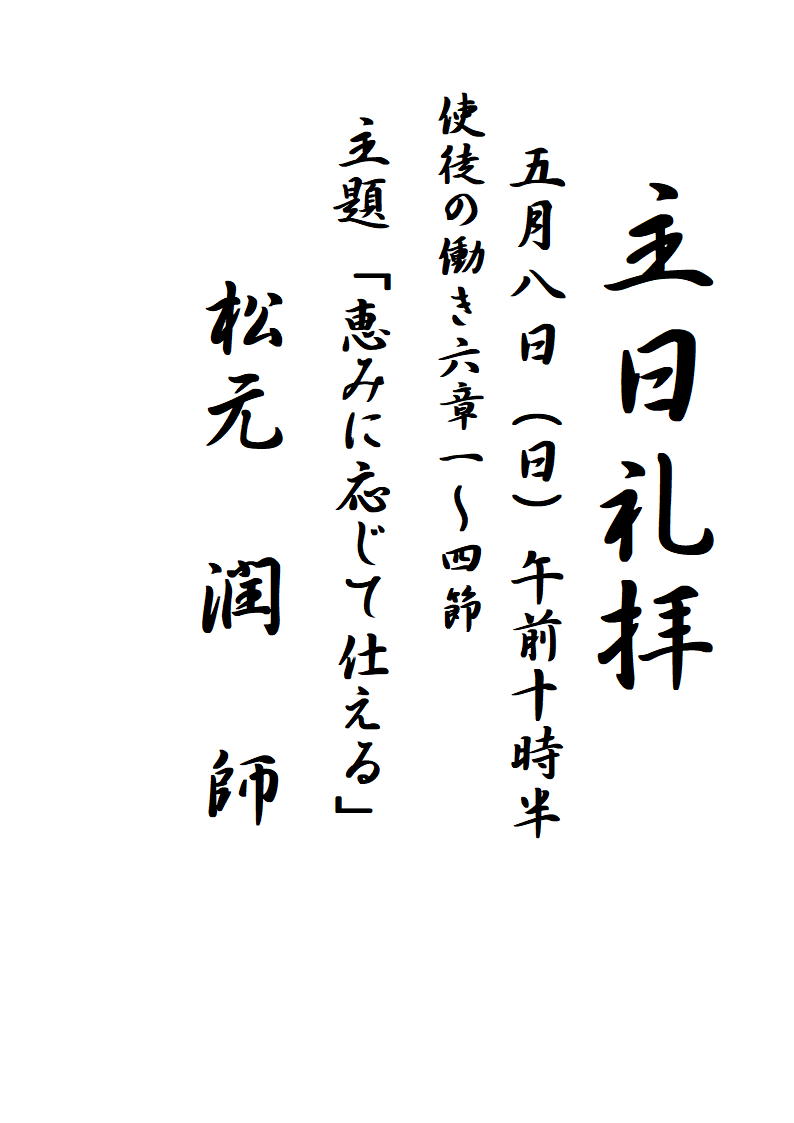 主日礼拝
五月八日（日）午前十時半
使徒の働き六章一～四節
主題「恵みに応じて仕える」
松元　潤　師